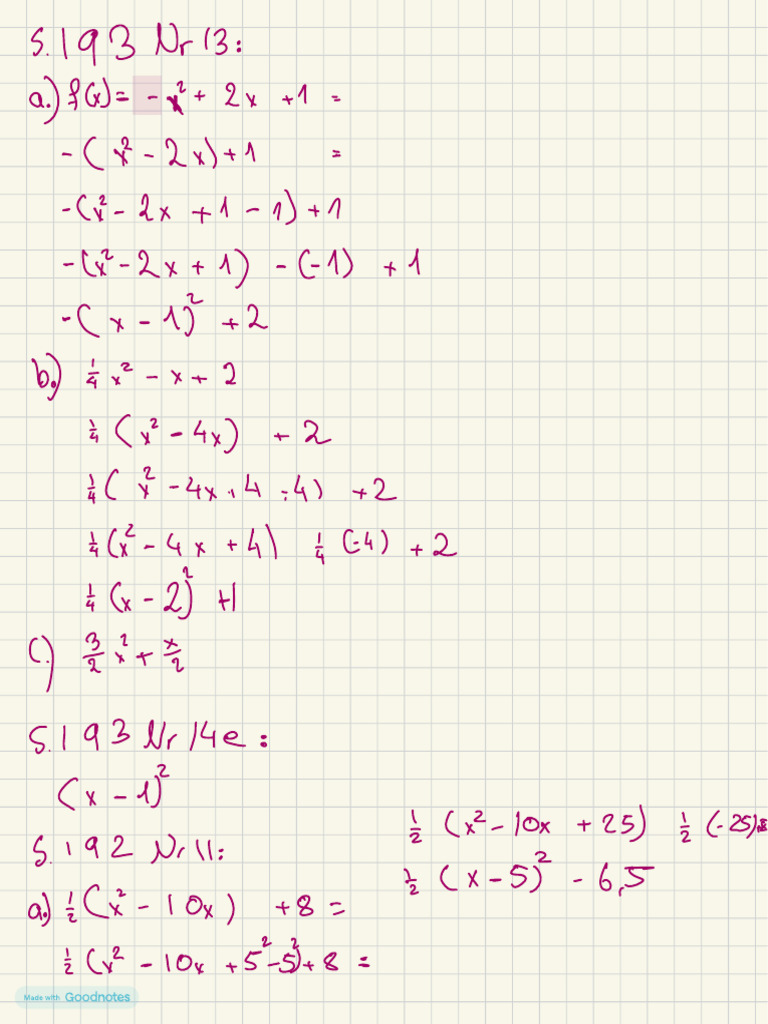 S.193 Nr 13:
a.) f(x) = - x² + 2x + 1 =
-(x² - 2x) + 1 =
-(x² - 2x + 1 - 1) + 1
-(x² - 2x + 1) - (-1) + 1
-(x - 1)² + 2
b.) 1/4 x² - x + 2
1/4 (x² - 4x) + 2
1/4 (x² - 4x + 4 - 4) + 2
1/4 (x² - 4x + 4) 1/4 (-4) + 2
1/4 (x - 2)² + 1
c.) 3/2 x² + x/2
S.193 Nr 14e:
(x - 1)²
S.192 Nr 11:
a.) 1/2 (x² - 10x) + 8 =
1/2 (x² - 10x + 5² - 5²) + 8 =
1/2 (x² - 10x + 25) 1/2 (-25)+8
1/2 (x - 5)² - 6,5
Made with Goodnotes